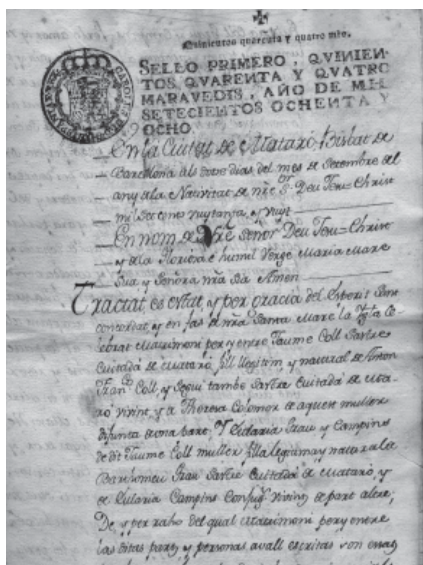 Quinientos quarenta y quatro mrs.
SELLO PRIMERO, QVINIEN-
TOS QVARENTA Y QVATRO
MARAVEDIS, AÑO DE MIL
SETECIENTOS OCHENTA Y
OCHO.
En la Ciutat de Mataró, Bisbat de
Barcelona als dotse dias del mes de Setembre del
any de la Nativitat de nre Sr. Deu Jesu=Christ
mil set cents vuytanta, y vuyt
En nom de Nre Señor Deu Jesu=Christ
y de la Gloriosa e humil Verge Maria Mare
Sua y Señora nra Sia Amen
Tractat es estat, y per gracia del Esperit Sant
concordat, y en fas de nra Santa Mare la Igla ce
lebrat Matrimoni per y entre Jaume Coll Sastre
Ciutadá de Mataró, fill llegitim, y natural de
Franco. Coll, y Seguí també Sastre Ciutadá de Mata
ró vivint, y de Theresa Colomer sa muller
difunta de una part, Y Eularia Grau y Campins
de dit Jaume Coll muller, filla legitima y natural de
Barthomeu Grau Sastre Ciutadá de Mataró, y
de Eularia Campins Conjuges vivints de part altre;
De y per raho del qual Matrimoni per y entre
las ditas parts, y personas avall escritas son estats